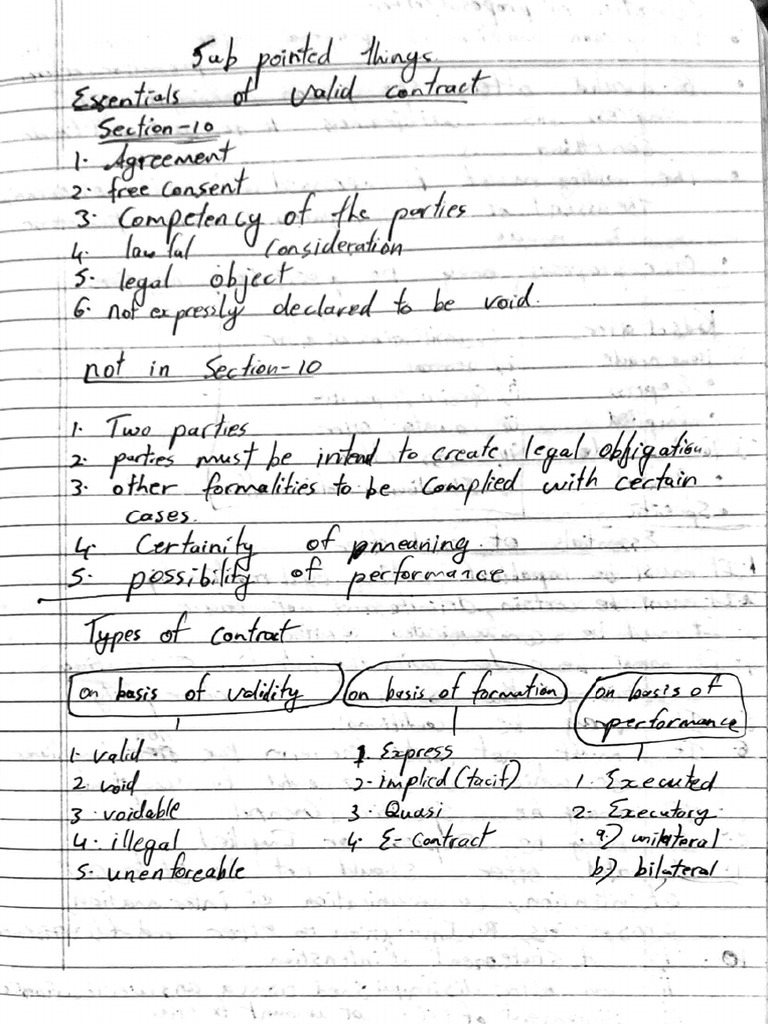 Sub pointed things
Essentials of valid contract
Section-10
1. Agreement
2. free consent
3. Competency of the parties
4. lawful consideration
5. legal object
6. not expressly declared to be void.
not in Section-10
1. Two parties
2. parties must be intend to create legal obligation
3. other formalities to be complied with certain
cases.
4. Certainity of meaning.
5. possibility of performance
Types of contract
on basis of validity
1. valid
2. void
3. voidable
4. illegal
5. unenforeable
on basis of formation
1. Express
2. implied (tacit)
3. Quasi
4. E-Contract
on basis of
performance
1. Executed
2. Executory
a.) unilateral
b.) bilateral